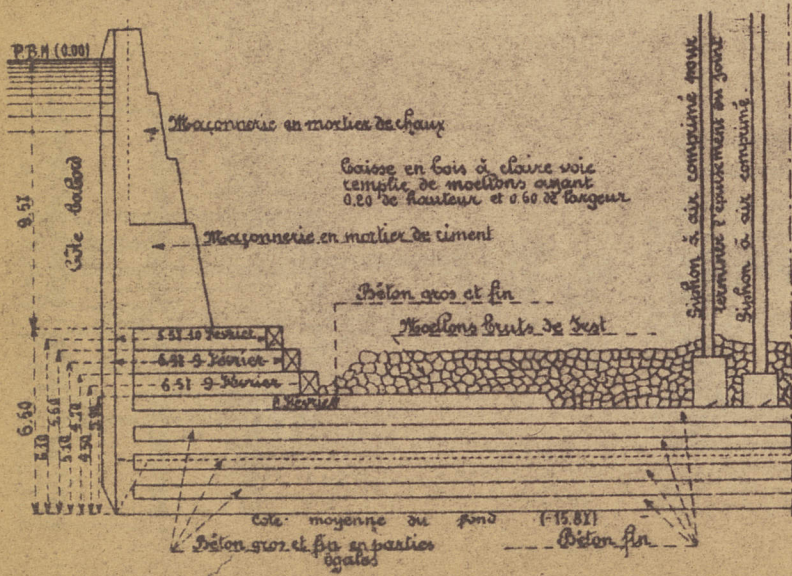 P.B.M (0.00)
Maçonnerie en mortier de chaux
Caisse en bois à claire voie
remplie de moellons ayant
0.20 de hauteur et 0.60 de largeur
Maçonnerie en mortier de ciment
Côté bâbord
9.57
Béton gros et fin
Moellons bruts de Test
Siphon à air comprimé pour
terminer l'épuisement du joint
Siphon à air comprimé.
5.57-10 Février
6.57-9-Février
6.57 9-Février
8 Février
6.60
6.10
5.60
5.10
4.70
4.50
Cote moyenne du fond (-15.87)
Béton gros et fin en parties
égales
Béton fin